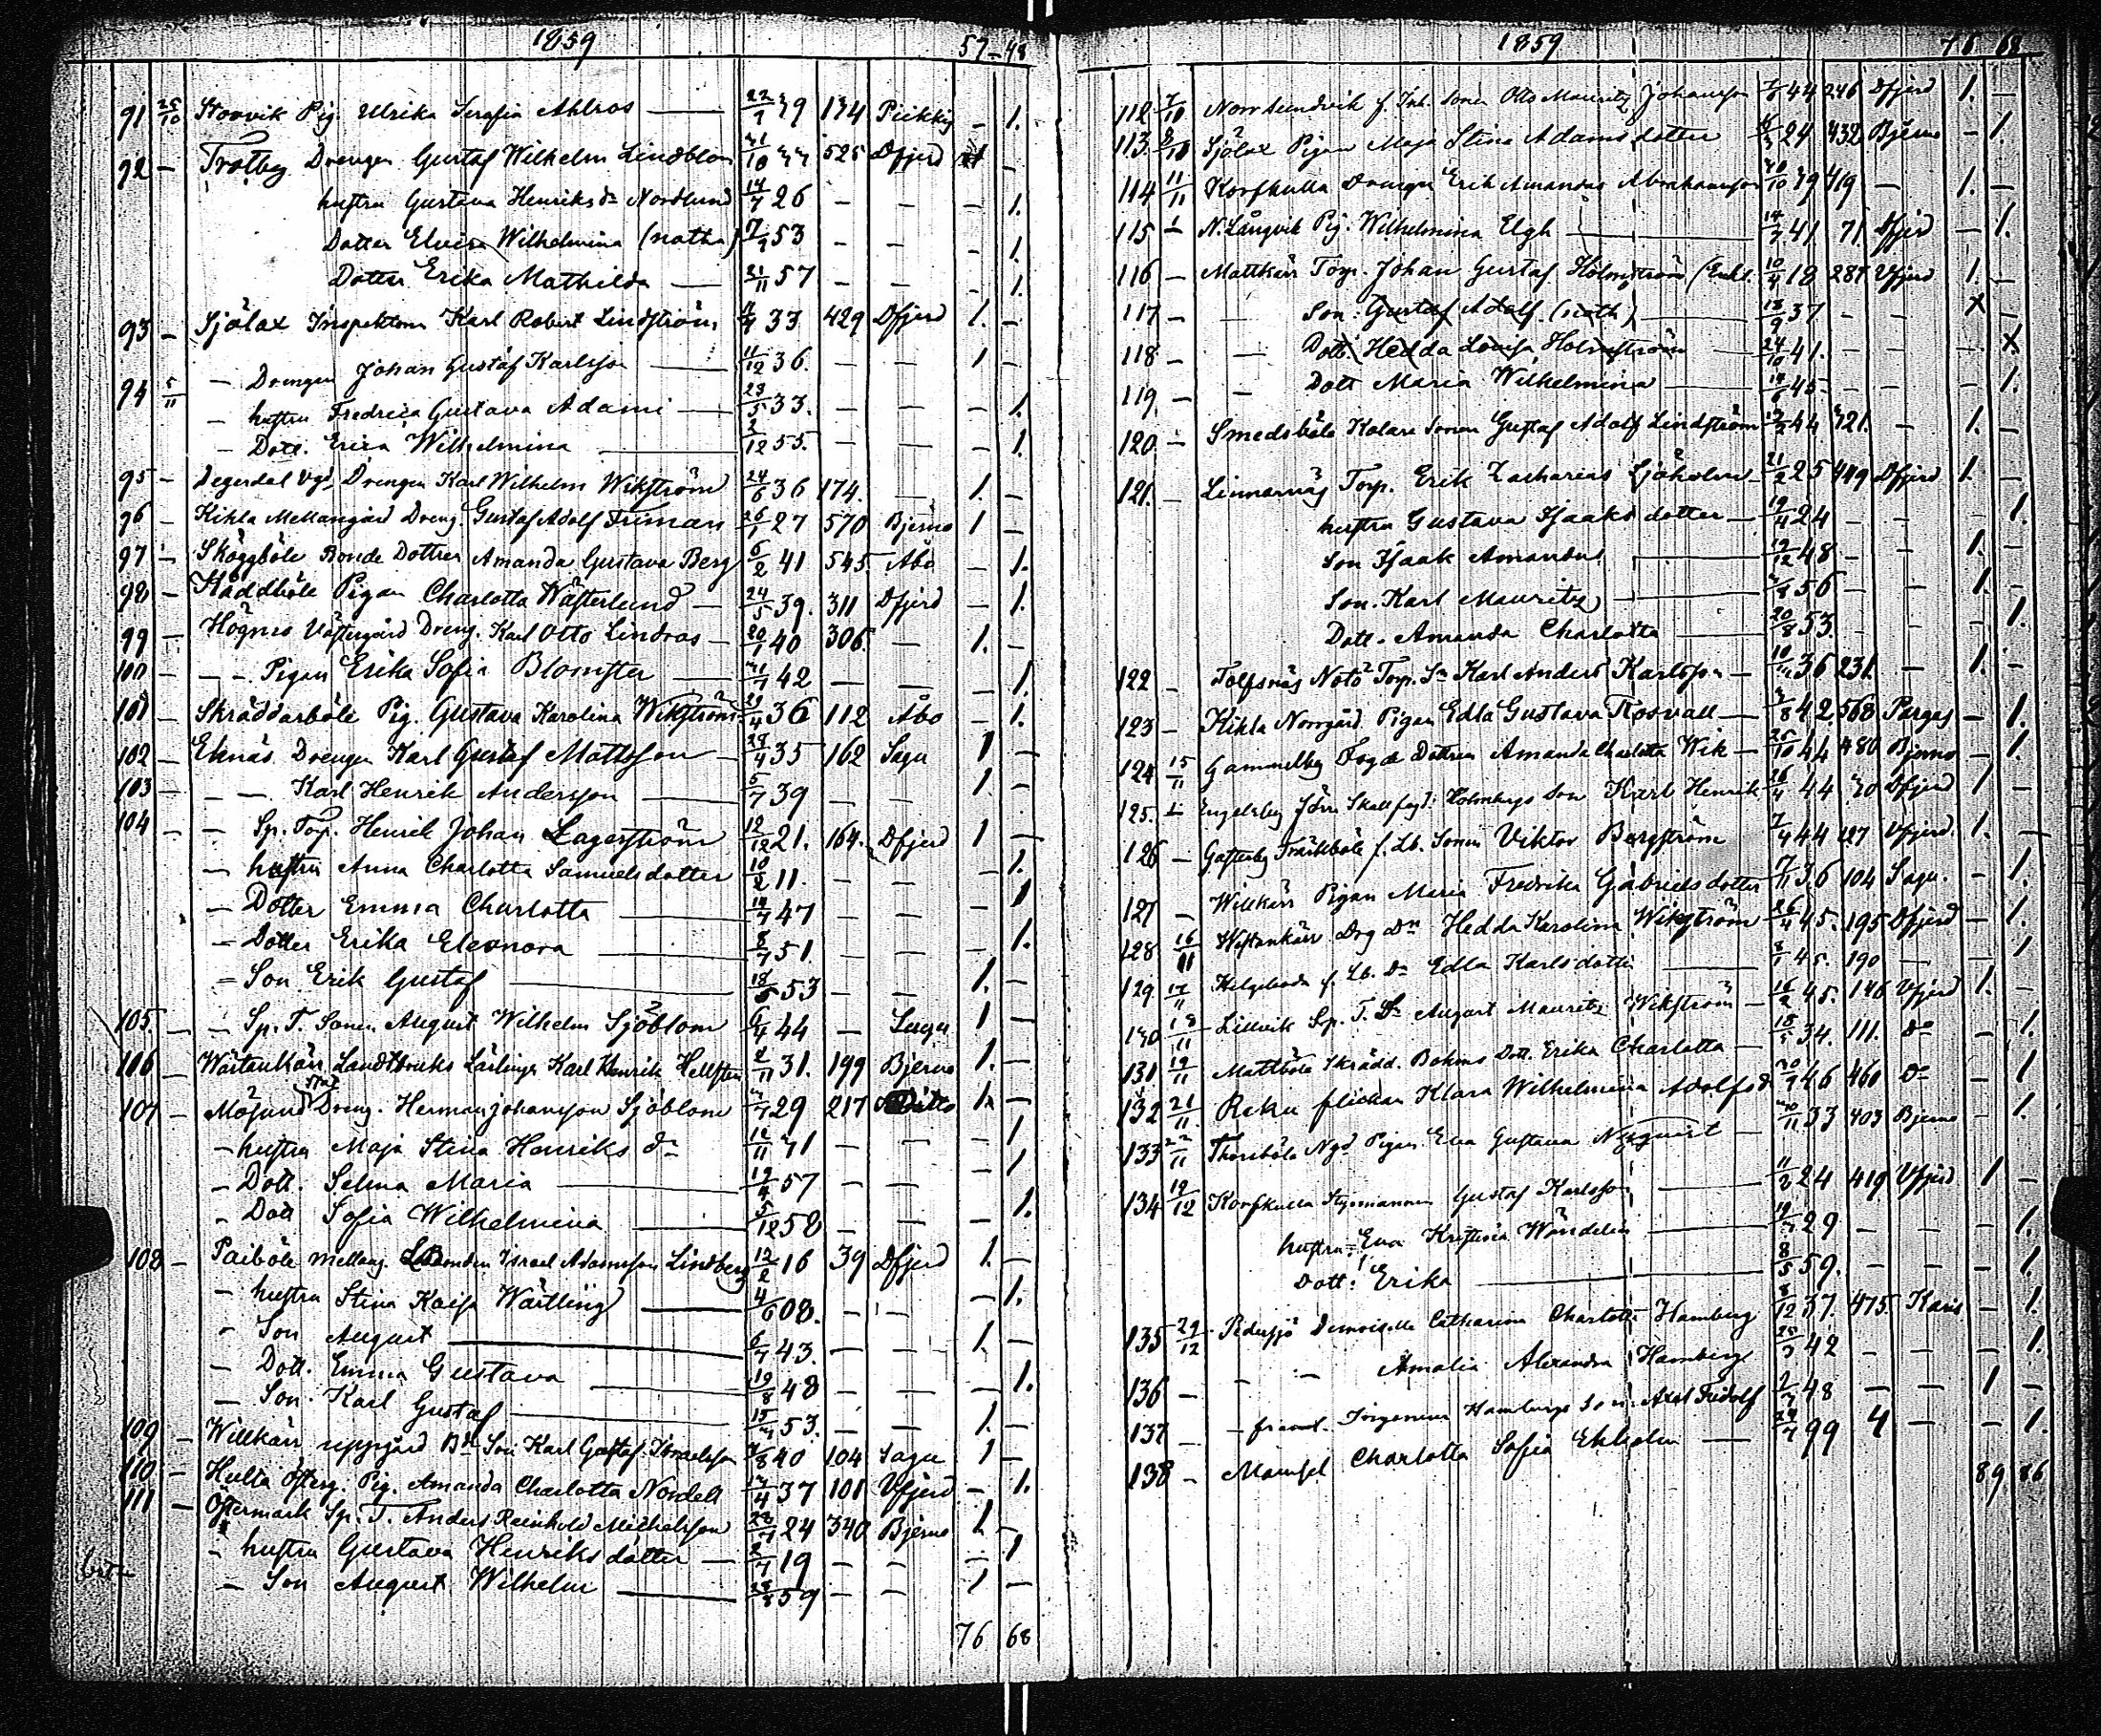 1859 57-48
91 25/10 Storvik Pig. Ulrika Serafia Ahlros 22/7 39 134 Piikkis - 1.
92 - Trotby Drengen Gustaf Wilhelm Lindblom 525 Dfjerd -
hustru Gustava Henriksdr Nordlund 14/7 26 - - - 1.
Dotter Elvira Wilhelmina (natha) 7/9 53 - - - 1
Dotter Erika Mathilda 21/11 57 - - - 1.
93 - Sjölax Inspektoren Karl Robert Lindström 33 429 Dfjerd 1. -
- Drengen Johan Gustaf Karlsson 11/12 36. - - 1 -
94 5/11 - hustru Fredrica Gustava Adami 23/5 33. - - - 1.
- Dott. Erica Wilhelmina 2/12 55. - - - 1.
95 - Degerdal Vgd Drengen Karl Wilhelm Wikström 24/6 36 174. - 1. -
96 - Kihla Mellangård Dreng. Gustaf Adolf Friman 26/1 27 570 Bjerno 1 -
97 - Skäggböle Bonde Dottren Amanda Gustava Berg 6/2 41 545. Åbo - 1.
98 - Pigan Charlotta Wästerlund - 24/5 39. 311 Dfjerd - 1.
99 - Högnes Västergård Dreng. Karl Otto Lindros - 20/1 40 306. - 1. -
100 - - - Pigan Erika Sofia Blomster 42 - - - 1.
101 - Skräddarböle Pig. Gustava Karolina Wikström 36 112 Åbo - 1.
102 - Eknäs Drengen Karl Gustaf Mattsson - 29/4 35 162 Sagu 1 -
103 - - - Karl Henrik Andersson 5/7 39 - - 1. -
104 - - Sp. Torp. Henrik Johan Lagerström 12/12 21. 164. Dfjerd 1 -
- hustru Anna Charlotta Samuelsdotter 10/2 11. - - - 1.
- Dotter Emma Charlotta 14/7 47 - - - 1
- Dotter Erika Eleonora 8/7 51. - - - 1.
- Son Erik Gustaf 18/5 53 - - 1. -
105. - - Sp. T. Sonen August Wilhelm Sjöblom 44 - Sagu 1 -
106 - Wästankärr Landtbruks Lärlingen Karl Henrik Hellsten 2/11 31. 199 Bjerno 1. -
107 - Mösund Stat Dreng. Herman Johansson Sjöblom 29 217 Ditto 1. -
- hustru Maja Stina Henriks dr - - - 1
- Dott. Selma Maria 19/4 57 - - - 1
- Dott Sofia Wilhelmina 5/12 58 - - - 1.
108 - Paiböle Mellang. Bonden Israel Adamsson Lindberg 12/2 16 39 Dfjerd 1. -
- hustru Stina Kajsa Wärtling 4/6 08. - - - 1.
- Son August 6/7 43. - - 1. -
- Dott. Emma Gustava 19/8 48 - - - 1.
- Son Karl Gustaf 53. - - 1. -
109 - Willkärr uppgård Bd Son Karl Gustaf Israelsson 40 104 Sagu 1 -
110 - Hulta Österg. Pig. Amanda Charlotta Nordell 37 101 Vfjerd - 1.
111 - Östermark Sp. T. Anders Reinhold Michelsson 24 340 Bjerno 1 -
- hustru Gustava Henriksdotter 2/7 19 - - - 1
- Son August Wilhelm 59 - - 1 -
76 68
1859 76 68
112 7/10 Norrsundvik f. Inh. Sonen Otto Mauritz Johansson 44 246 Dfjerd 1. -
113. Sjölax Pigan Maja Stina Adamsdotter 24 432 Bjerno - 1.
114 11/11 Korskulla Drengen Erik Amandus Abrahamsson 39 419 - 1. -
115 - N. Långvik Pig. Wilhelmina Elgh 14/7 41 71 Dfjerd - 1.
116 - Mattkärr Torp. Johan Gustaf Holmström (Enkl. 10/4 18 287 Vfjerd 1. -
117 - - Son. Gustaf Adolf. (noth) 18/9 37 - - X -
118 - - Dott Hedda Lovisa Holmström 24/10 41. - - - X
119. - - Dott Maria Wilhelmina 45 - - - 1.
120 - Smedsböle Kolare Sonen Gustaf Adolf Lindström 44 - 1. -
121. - Linnarnäs Torp. Erik Zacharias Sjöholm 21/2 25 449 Dfjerd 1. -
hustru Gustava Isaks dotter 19/4 24 - - - 1.
Son Isaak Amandus 19/12 48 - - 1. -
Son. Karl Mauritz 56 - - 1. -
Dott. Amanda Charlotta 20/8 53. - - - 1.
122 - Tolfsnäs Notö Torp. Sn Karl Anders Karlsson 36 231. - 1. -
123 - Kihla Norrgård Pigan Edla Gustava Rosvall 42 568 Pargas - 1.
124 15/11 Gammelby Fogde Dottren Amanda Charlotta Wik 25/10 44 480 Bjerno - 1.
125. - Engelsby Skallfogd: Holmbergs Son Karl Henrik 26/4 44 Dfjerd 1 -
126 - Gästerby Träskböle f. Lb. Sonen Viktor Bergström 7/4 44 127 Vfjerd. 1. -
127 - Willkärr Pigan Maria Fredrika Gabrielsdotter 7/11 36 104 Sagu. - 1.
128 16/11 Westankärr Drg Dn Hedda Karolina Wikström 26/4 45. 195 Dfjerd - 1.
129. 17/11 Helgeboda f. Lb. Dr Edla Karlsdotter 45. 190 - - 1
130 18/11 Lillvik Sp. T. Sn August Mauritz Wikström 16/2 45. 146 Vfjerd 1. -
131 19/11 Mattböle Skrädd. Bohms Dott. Erika Charlotta 34. 111. Do - 1.
132 21/11 Reku flickan Klara Wilhelmina Adolfsd 46 460 Do - 1
133 22/11 Thorsböle Ngd Pigan Eva Gustava Nyqvist 33 403 Bjerno - 1.
134 19/12 Korskulla Styrmannen Gustaf Karlsson 11/2 24 419 Vfjerd 1 -
hustru Eva Kristina Wendelin 29 - - - 1.
Dott. Erika 8/5 59. - - - 1.
135 29/12 Pedersjö Demoiselle Catharina Charlotta Hamberg 8/12 37. 475. Karis - 1.
136 - - - Amalia Alexandra Hamberg 42 - - - 1.
137 - - framl. Hambergs Son Axel Fridolf 2/7 48 - - 1 -
138 - Mamsel Charlotta Sofia Ekholm 99 4 - - 1.
89 86